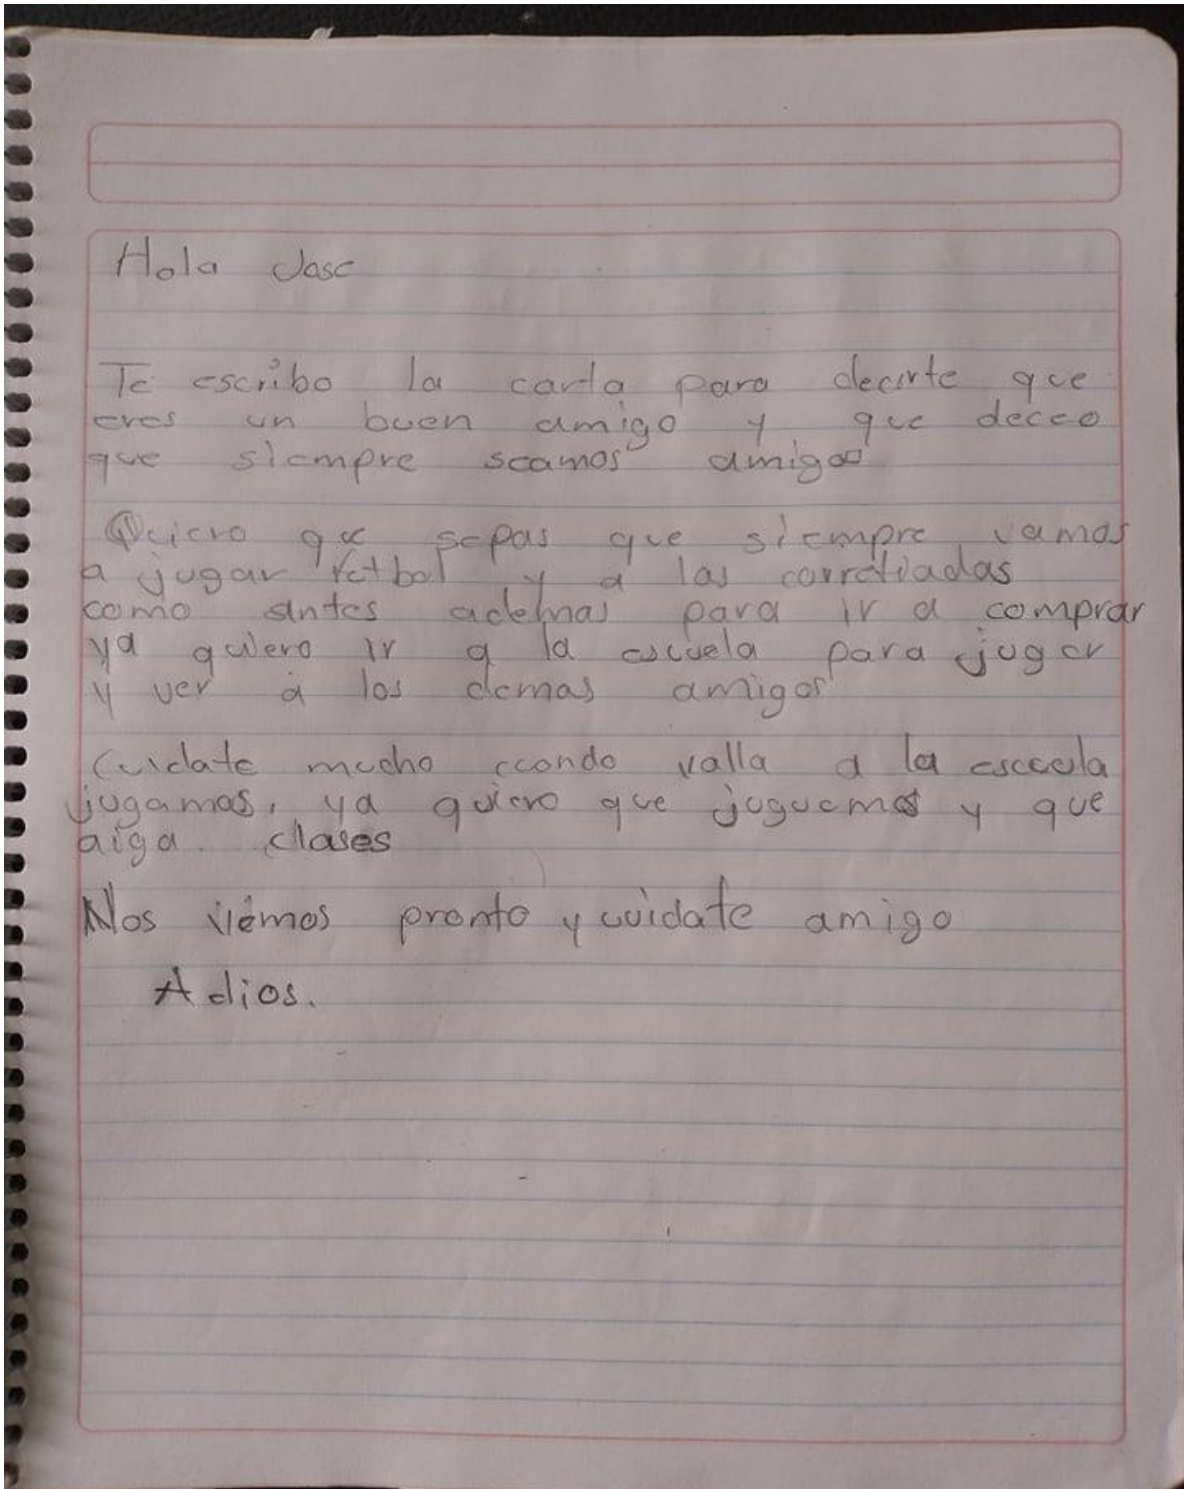 Hola Jose
Te escribo la carta para decirte que
eres un buen amigo y que deceo
que siempre seamos amigos
Quiero que sepas que siempre vamos
a jugar futbol y a las corretiadas
como antes ademas para ir a comprar
ya quiero ir a la escuela para jugar
y ver a los demas amigos
Cuidate mucho cuando valla a la escuela
jugamos, ya quiero que juguemos y que
aiga. clases
Nos viemos pronto y cuidate amigo
Adios.